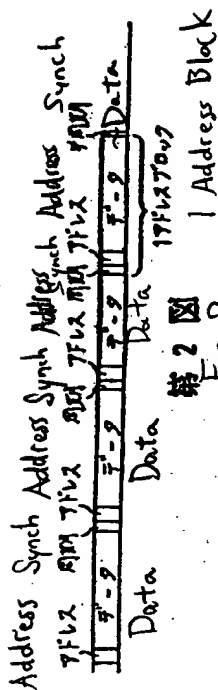 Address Synch Address Synch Address Synch Address Synch
アドレス 同期 アドレス 同期 アドレス 同期 アドレス 同期
データ データ データ データ
Data Data Data Data
1アドレスブロック
第2図
1 Address Block